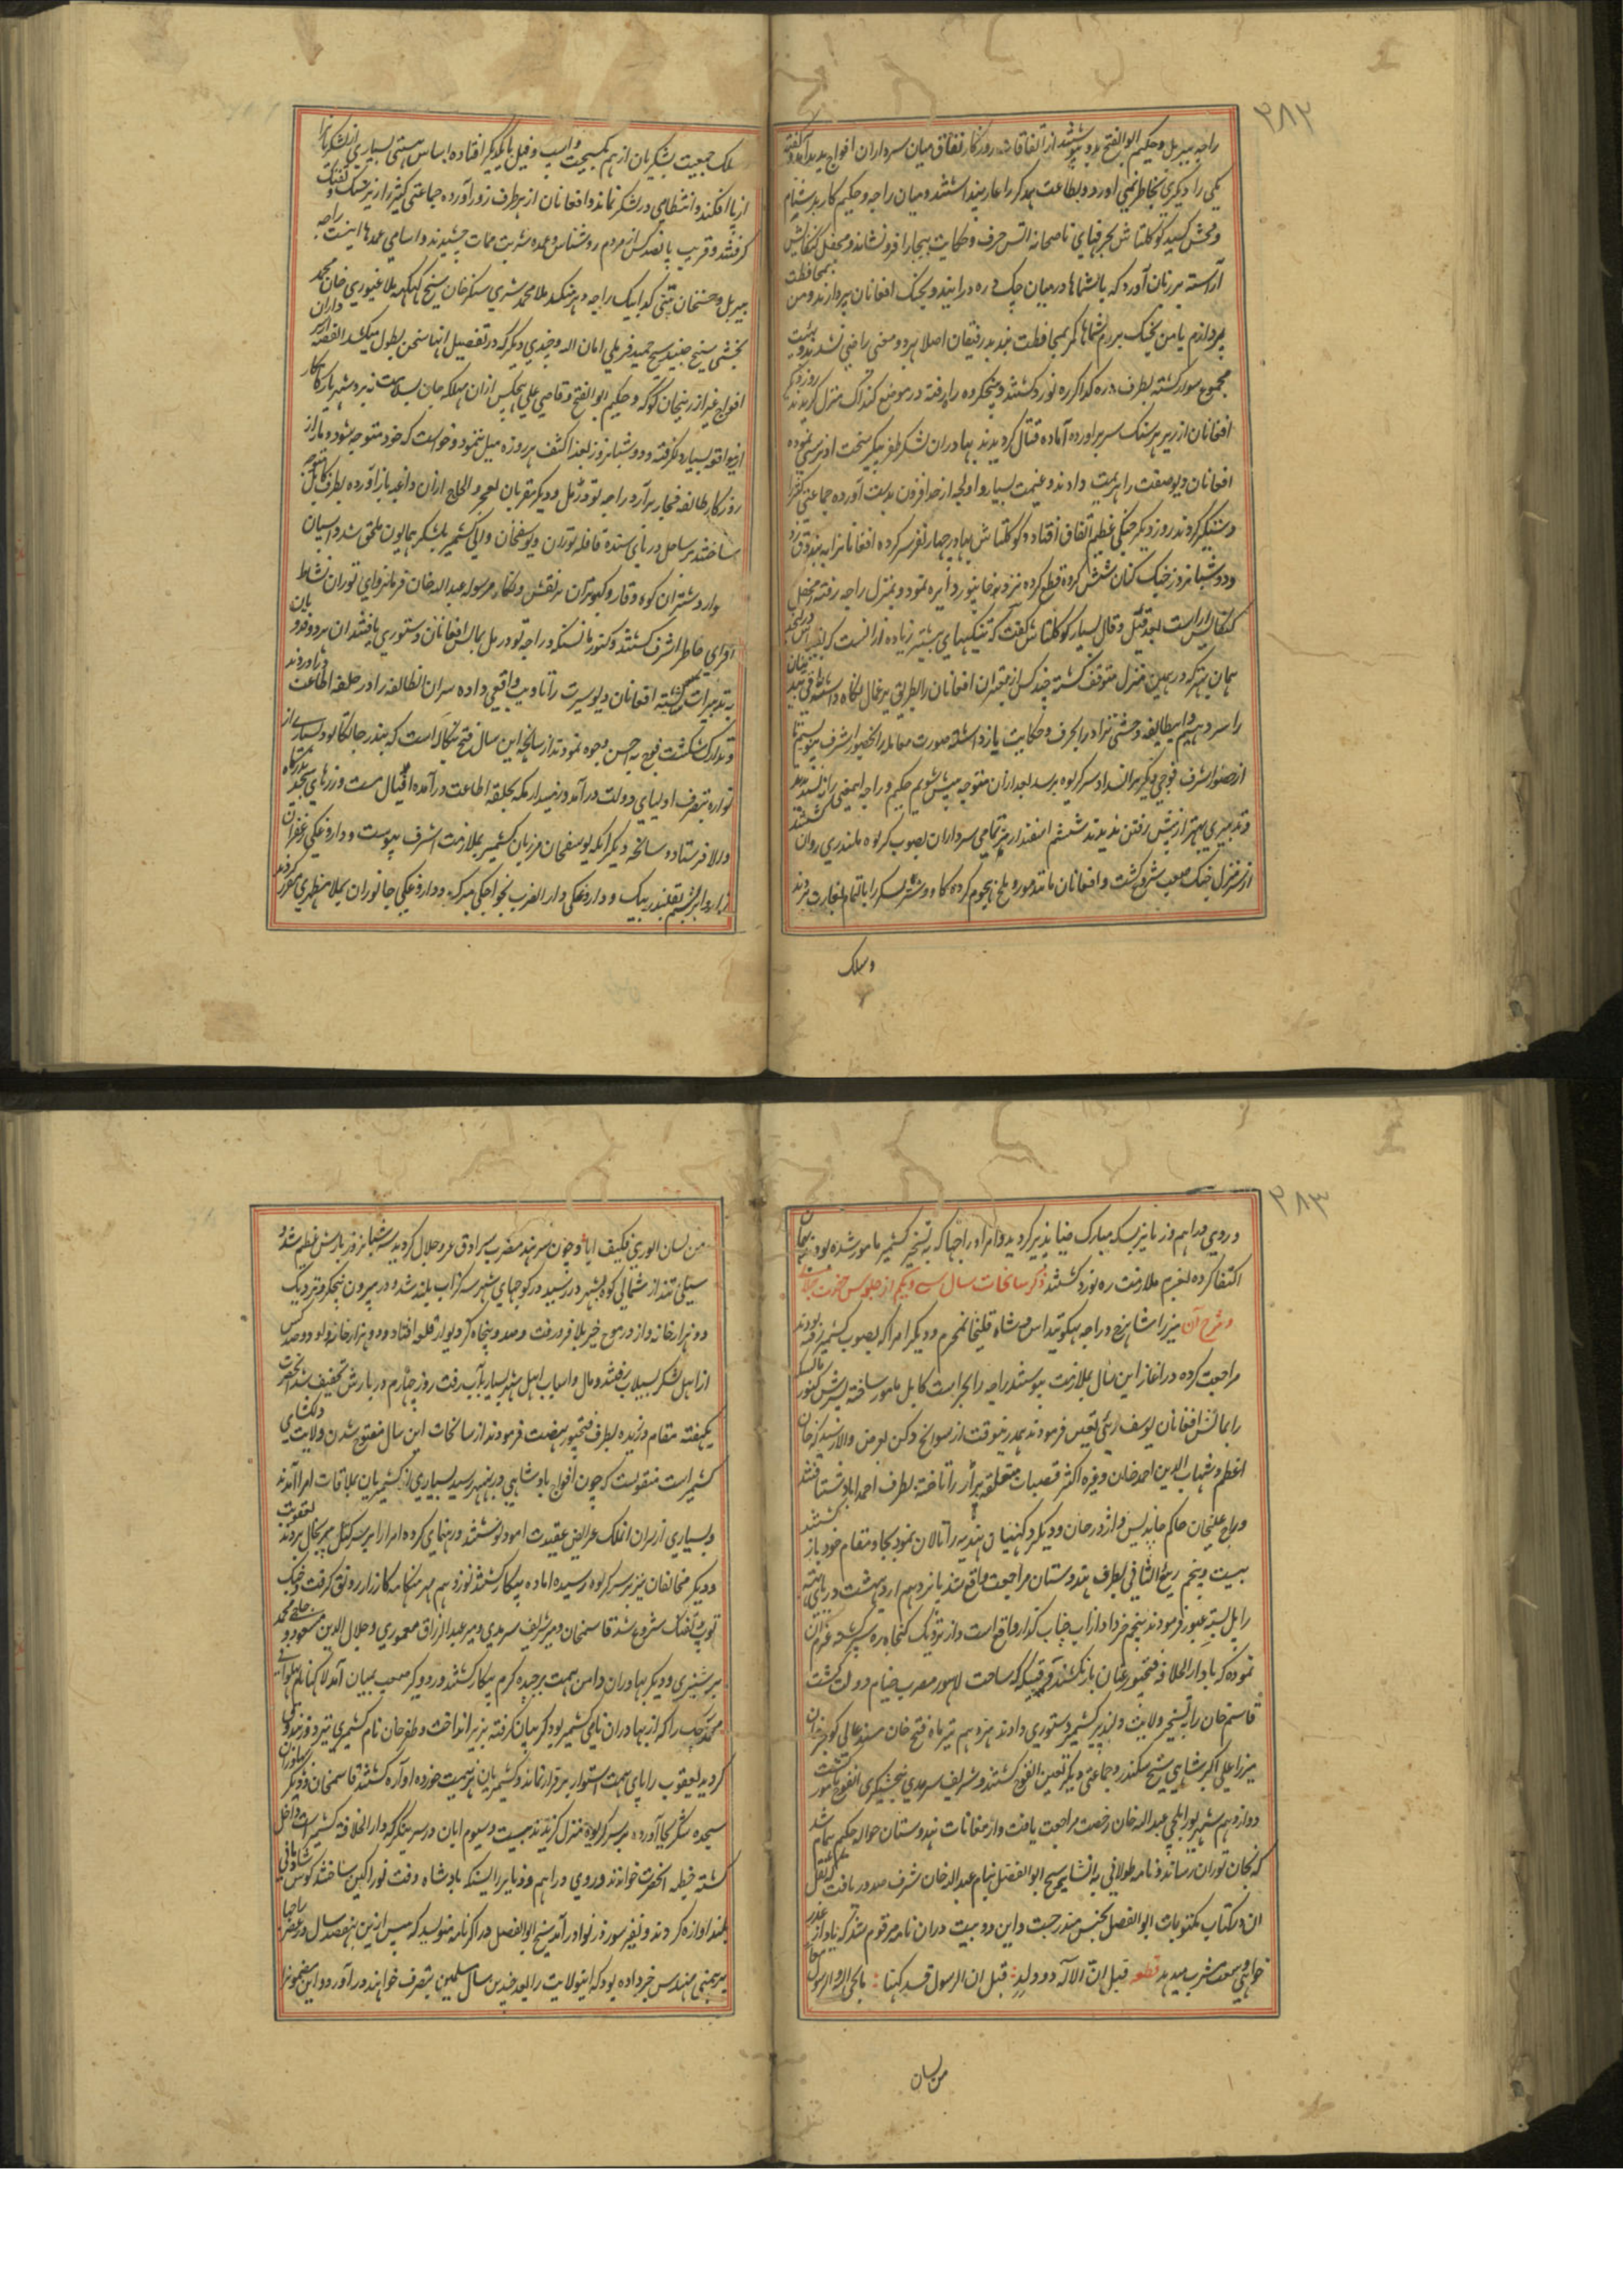 ٣٨٢
راجه بیربل و حکیم ابوالفتح بدو پیوستند از اتفاقات روزگار نفاق میان سرداران افواج پدید آمد و گفته
یکی را دیگری بخاطر نمی آورد و بطاعت همدگر را عار میدانستند و میان راجه و حکیم کار بدشنام
و فحش کشید کوکلتاش بحرفهای ناصحانه آتش حرف و حکایت بیجا را فرو نشاند و محفل کنگاش
آراسته بر زبان آورد که یا شماها در میان چک دره درایید و بجنگ افغانان پردازند و من بمحافظت
پردازم یا من بجنگ بروم شماها کمر بمحافظت بندید رفیقان اصلا بر دو معنی راضی نشدند و بهیئت
مجموع سوار گشته بطرف دره کداکر ره نورد گشتند و پنجکروه راه رفته در موضع کنداک منزل گزیدند روز دیگر
افغانان از زیر هر سنگ سر برآورده آماده قتال گردیدند بهادران لشکر ظفر پیکر سخت آویزشی نموده
افغانان دیو صفت را هزیمت دادند و غنیمت بسیار و اولجه از حد افزون بدست آورده جماعتی کثیر را
دستگیر کردند روز دیگر جنگی عظیم اتفاق افتاد و کوکلتاش بهادر چهار نفر سرکرده افغانانرا به بندوق زد
و دو شبانروز جنگ کنان شش کروه قطع کرده نزد خانپور دایره نمود و بمنزل راجه رفته محفل
کنگاش آراست بعد قیل و قال بسیار کوکلتاش گفت که تنگیهای پیشتر زیاده از آنست
همان بهتر که در همین منزل متوقف گشته چند کس از معتبران افغانان را بطریق یرغمال نگاه داشته
را سر دهیم و اینطایفه وحشی نژاد را بحرف و حکایت باز داشته صورت معامله را بحضور اشرف بنویسیم تا
از حضور اشرف فوجی دیگر بامداد سر کریوه برسد بعد ازان متوجه پیش شویم حکیم و راجه اینمعنی را نپسندیدند
و تدبیری بهتر از پیش رفتن ندیدند ششم اسفندار نیز تمامی سرداران بصوب کریوه بلندری روان گشتند
از سر منزل جنگ صعب شروع گشت و افغانان مانند مور و ملخ هجوم کرده گاو و شتر لشکر را بالتمام بغارت بردند
و سلک
سلک جمعیت لشکریان از هم گسیخت و اسب و فیل بایکدیگر افتاده اساس هستی بسیاری از لشکریانرا
از پا افکند و انتظامی در لشکر نماند و افغانان از هر طرف زور آورده جماعتی کثیر را زیر سنگ و تفنگ
گرفتند و قریب پانصد کس از مردم روشناس و عمده شربت ممات چشیدند و اسامی عمدها اینست راجه
بیربل و حسنخان پتنی گدابیک راجه دهرمنکد ملا محمد شیری سنکرخان شیخ کهکهه ملا غیوری خان محمد
بخشی شیخ جنید شیخ حمید فرملی امان الله و چندی دیگر که در تفصیل آنها سخن بطول میکشد القصه از سرداران
افواج غیر از زینخان کوکه و حکیم ابوالفتح و قاضی علی هیچکس ازان مهلکه جان بسلامت نبرد شهریار کامکار
ازین واقعه بسیار مکرّفته و دو شبانروز بغذا کشف هر روزه میل ننمود و خواست که خود متوجه شود و دمار از
روزگار طایفه فجار برآرد راجه تودرمل و دیگر مقربان بعجز و الحاح ازان داعیه باز آورده بطرف کابل متوجه
ساختند بر ساحل دریای سنده قافله توران و یوسفخان والی کشمیر بلشکر همایون ملحق شد و اسپان
وار و شتران کوه وقار و کبوتران پر نقش و نگار مرسوله عبدالله خان فرمانروای توران نشاط
افزای خاطر اشرف گشتند و کنور مانسنکه و راجه تودرمل بمالش افغانان دستوری یافتند آن هر دو فدویان
به تدبیرات شایسته افغانان دیو سیرت را تادیب واقعی داده سران آنطایفه را در حلقه اطاعت درآوردند
و تدارک شکست فوج به احسن وجوه نمودند از سانحه این سال فتح بنگاله است که بندر چاتگانو و بسیاری از
نواره بتصرف اولیای دولت درآمد و زمیندار مکه بحلقه اطاعت درآمده افیال مست و زرهای بیحد بدرگاه
والا فرستاد و سانحه دیگر آنکه یوسفخان مرزبان کشمیر بملازمت اشرف پیوست و داروغگی زعفران
زار و ابریشم بقلندر بیک و داروغگی دارالضرب بخواجکی میرک و داروغگی جانوران بملا مظهری مقرر کردند
٣٨٣
و روی دراهم و زنا نیز بسکه مبارک ضیا پذیر گردید و امرا و راجها که به تسخیر کشمیر مامور شده بودند بهمان
اکتفا کرده بعزم ملازمت ره نورد گشتند ذکر سانحات سال سی و یکم از جلوس حضرت
و شرح آن میرزا شاهرخ و راجه بهگونتداس و شاه قلیخان محرم و دیگر امرا که بصوب کشمیر رفته بودند
مراجعت کرده در آغاز این سال بملازمت پیوستند راجه را بحراست کابل مامور ساخته پسرش کنور مانسنکه
را بمالش افغانان یوسف زئی تعین فرمودند همدرینوقت از سوانح دکن بعرض والا رسید که خان
اعظم و شهاب الدین احمد خان وغیره اکثر قصبات متعلقه برار را تاخته بطرف احمداباد شتافتند
و راجه علیخان حاکم خاندیس و اژدر خان و دیگر دکهنیان هندیه را تالان نموده بجا و مقام خود باز گشتند
بیست و پنجم ربیع الثانی بطرف هندوستان مراجعت واقع شد پانزدهم اردیبهشت دریای بهته
را پل بسته عبور فرمودند پنجم خرداد از آب چناب گذار واقع است و از نزدیک کنجاه ره سپر گشته عزم آن
نموده که بدارالخلافه فتحپور عنان باز نکشند وقتیکه ساحت لاهور مضرب خیام دولت گشت
قاسم خان را به تسخیر ولایت دلپذیر کشمیر دستوری دادند هژدهم تیر ماه فتح خان مسند عالی گوجر خان
میرزا علی اکبر شاهی شیخ سکندر و جماعتی دیگر تعین الفوج گشتند و شریف سرمدی به بخشیگری آنفوج مامور گشت
دوازدهم شهریور ایلچی عبدالله خان رخصت مراجعت یافت و از مغانات هندوستان حواله حکیم همام شد
که بخان توران رساند و نامه طولانی به انشای شیخ ابوالفضل بنام عبدالله خان شرف صدور یافت که نقل
آن در کتاب مکتوبات ابوالفضل بجنس مندرجست و این دو بیت دران نامه مرقوم شد که یاد از عذر
خواهی ضعف مشرب میدهد قطعه قیل ان الاله ذو ولد : قیل ان الرسول قد کهنا : ما نجی الله و الرسول معا
من لسان
من لسان الوری فکیف انا و چون سرهند مضرب سرادق عز و جلال گردید سه شبانروز بارش عظیم شد و
سیلی تند از شمالی کوه بشهر در رسید در کوچهای شهر سه گز آب بلند شد و در بیرون پنجگز و نزدیک
دو هزار خانه و از در موج خیز بلا فرو رفت و صد و پنجاه گز دیوار قلعه افتاد و دو هزار خانه و دو صد کس
از اهل لشکر بسیلاب رفتند و مال و اسباب اهل شهر بسیار بآب رفت روز چهارم در بارش تخفیف شد آنحضرت
یکهفته مقام ورزیده بطرف فتحپور نهضت فرمودند از سانحات این سال مفتوح شدن ولایت دلگشای
کشمیر است منقولست که چون افواج بادشاهی در بهنبهر رسید بسیاری از کشمیریان بملاقات امرا آمدند
و بسیاری از سران آنملک عرایض عقیدت آمود نوشتند و رهنمای کرده امرا را بر سر کتل پیر پنجال بردند یعقوب
و دیگر مخالفان نیز بر سر کریوه رسیده آماده پیکار گشتند نوزدهم مهر هنگامه کارزار رونق گرفت و جنگ
توپ و تفنگ شروع شد قاسمخان و میر شریف سرمدی و میر عبدالرزاق معموری و جلال الدین مسعود و حاجی محمد
بر شبنری و دیگر بهادران دامن همت برچیده گرم پیکار گشتند و رد و گرد صعب بمیان آمد
محمد چک را که از بهادران نامی کشمیر بود گریبان گرفته بزیر انداخت و ظفر خان نام کشمیری نیز دو فرزند
گردید یعقوب را پای همت استوار بر قرار نماند و کشمیریان هزیمت خورده آواره گشتند قاسمخان و دیگر بهادران
سجده شکر بجا آورده بر سر کریوه منزل گزیدند بیست و سیوم آبان در سرینگر که دارالخلافه کشمیر است داخل
گشته خطبه آنحضرت خواندند و روی دراهم و دنانیر را بسکه بادشاه وقت نورآگین ساختند کوس شادمانی
بلند آوازه کردند و نفیر سور در نوا درآمد شیخ ابوالفضل در اکبرنامه مینویسد که پیش ازین بهفصد سال در عصر راجها
برهمنی مهندس خبر داده بود که اینولایت را بعد چندین سال مسلمین بتصرف خواهند درآورد و این مضمونرا